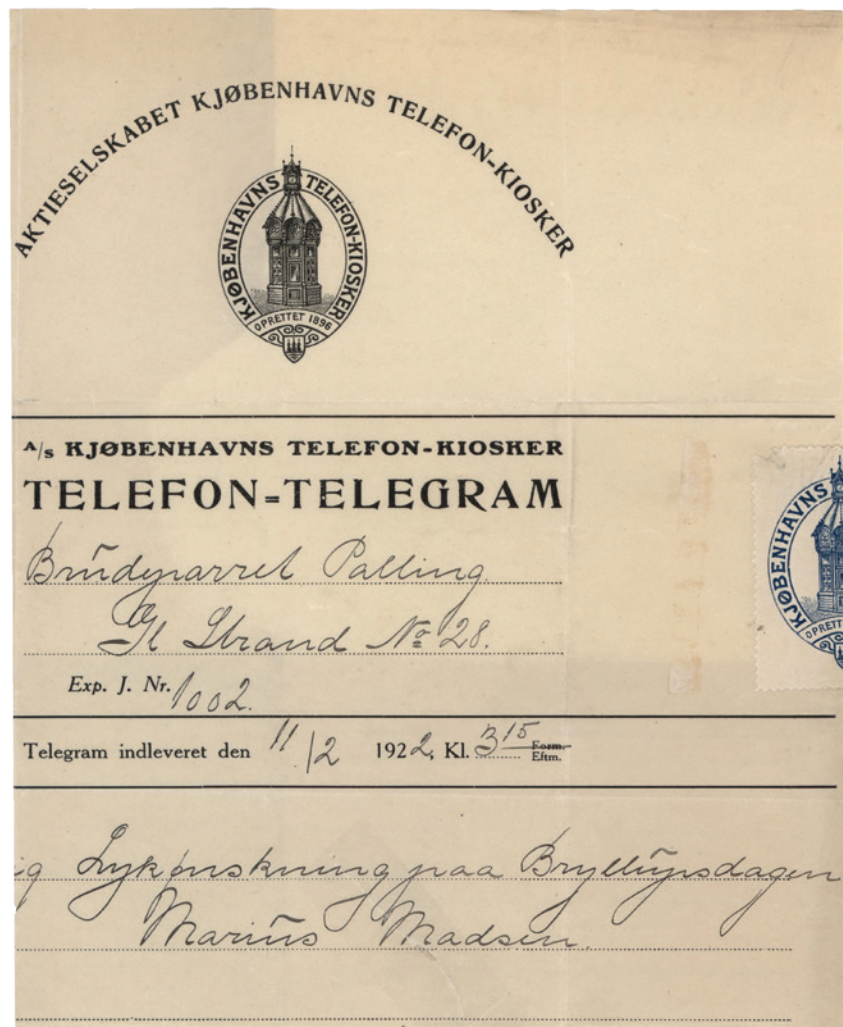 AKTIESELSKABET KJØBENHAVNS TELEFON-KIOSKER
KJØBENHAVNS TELEFON-KIOSKER
OPRETTET 1896
A/S KJØBENHAVNS TELEFON-KIOSKER
TELEFON=TELEGRAM
Brudeparret Palling
KJØBENHAVNS
Gl Strand No 28.
OPRETT
Exp. J. Nr. 1002.
Telegram indleveret den 11/2 1922, Kl. 3 15 Form. Eftm.
ig Lykønskning paa Bryllupsdagen
Marius Madsen.